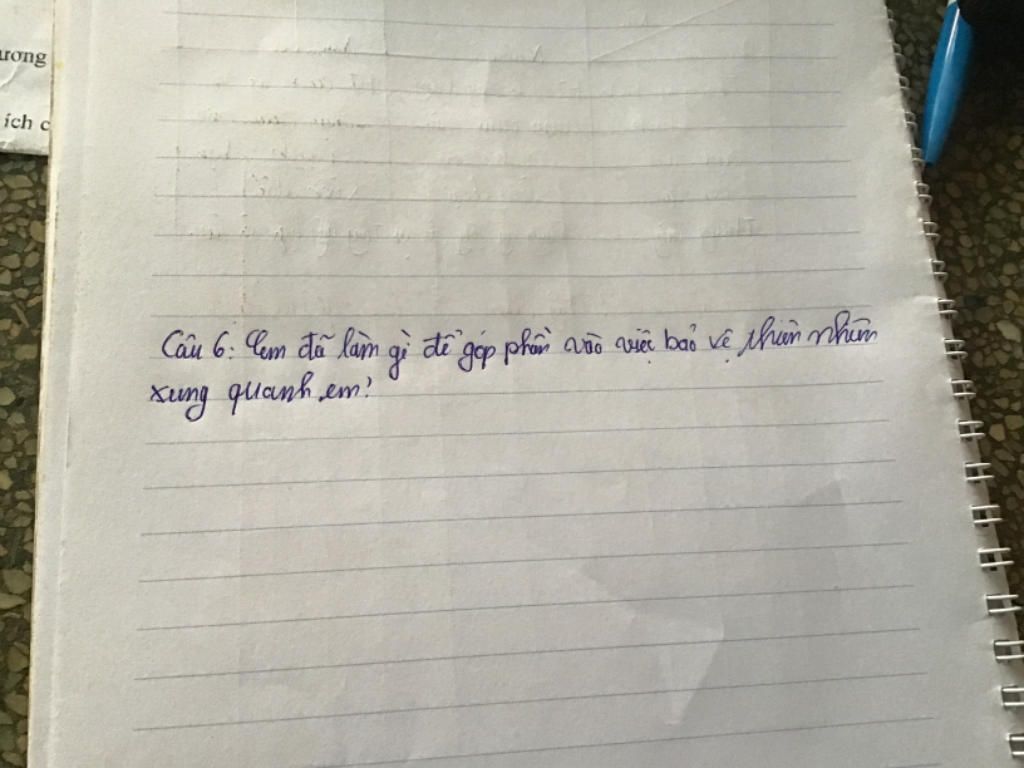 ương
ích c
Câu 6: Em đã làm gì để góp phần vào việc bảo vệ thiên nhiên
xung quanh em?